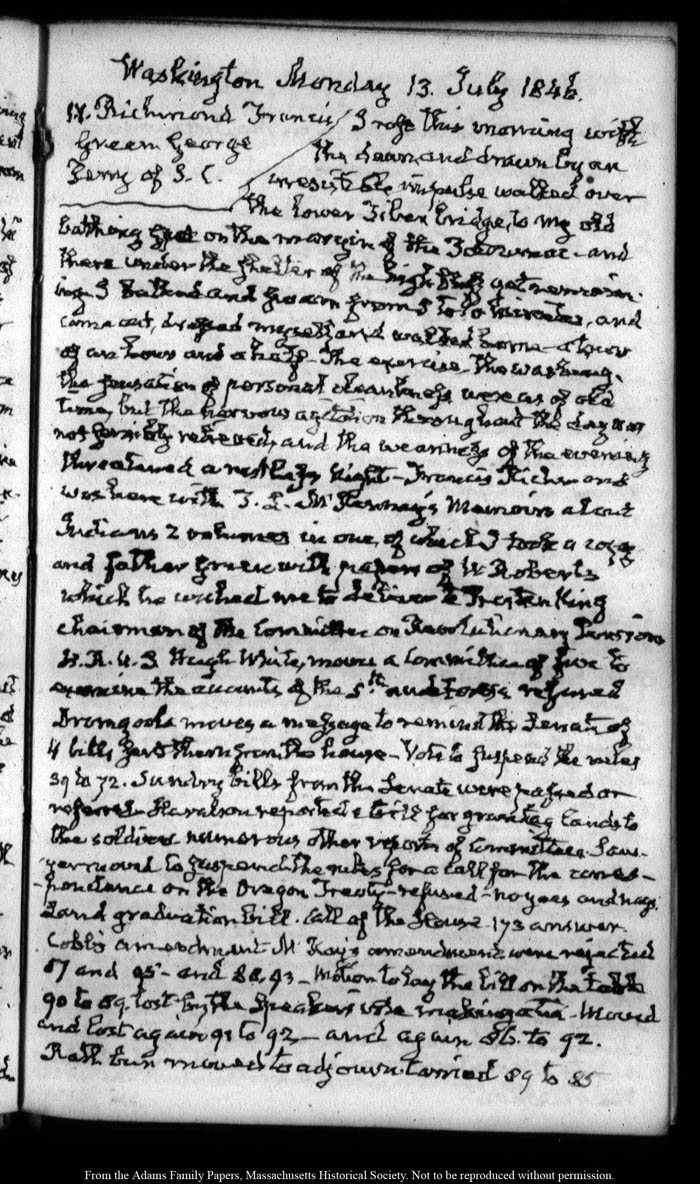 Washington Monday 13. July 1846.
IV. Richmond Francis
Green George
Terry of S. C.
I rose this morning with
the dawn, and drawn by an
irresistible impulse walked over
the lower Tiber bridge, to my old
bathing spot on the margin of the Potowmac and
there under the shelter of the high
I bathed and swam from 5 to 10 minutes, and
came out, dressed myself and walked home about
of an hour and a half. The exercise the washing
the sensation of personal cleanliness were as of old
time, but the nervous agitation throughout the day was
not sensibly relieved, and the weariness of the evening
threatened a restless Night. Francis Richmond
was here with T. L. McKenney's Memoirs about
Indians 2 volumes in one, of which I took a copy
and father Green with papers of W Roberts
which he wished me to deliver to Preston King
chairman of the Committee on Revolutionary Pensions
H. R. U. S Hugh White, moves a Committee of five to
examine the accounts of the 5th auditor refused
Dromgoole moves a message to remind the Senate of
4 bills sent them from the house. Vote to suspend the rules
39 to 72. Sundry bills from the Senate were passed or
referred. Haralson reported a bill for granting lands to
the soldiers numerous other reports of Committees. Saw-
yer moved to suspend the rules for a call for the corres-
pondence on the Oregon Treaty refused no yeas and nays.
Land graduation bill. call of the House 173 answer.
Cobb's amendment McKay's amendment were rejected
87 and 95 and 88, 93 Motion to lay the bill on the table
90 to 89 lost by the Speaker's vote making a tie. Moved
and lost again 91 to 92 and again 86. to 92.
Rathbun moved to adjourn. Carried 89 to 85
From the Adams Family Papers, Massachusetts Historical Society. Not to be reproduced without permission.